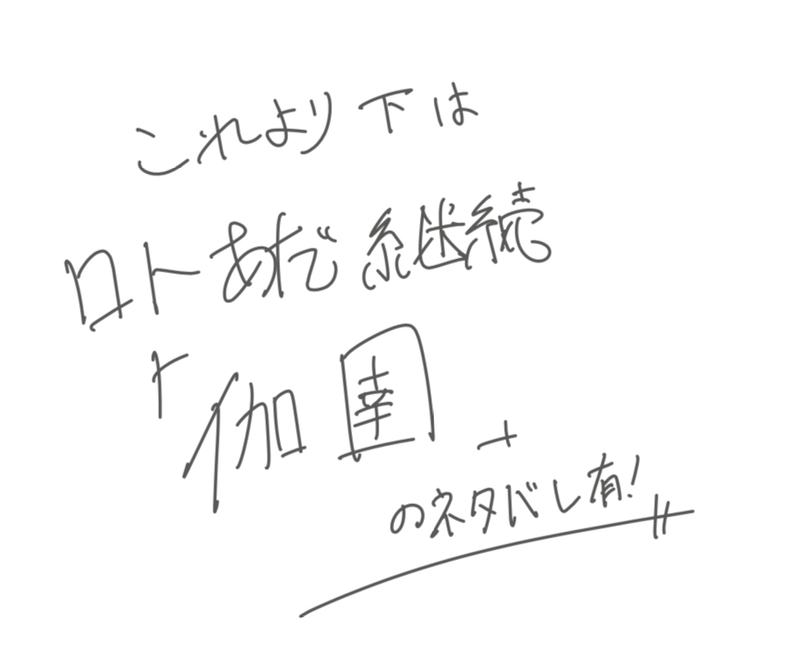 これより下は
ロトあだ継続
「伽圉」
のネタバレ有!